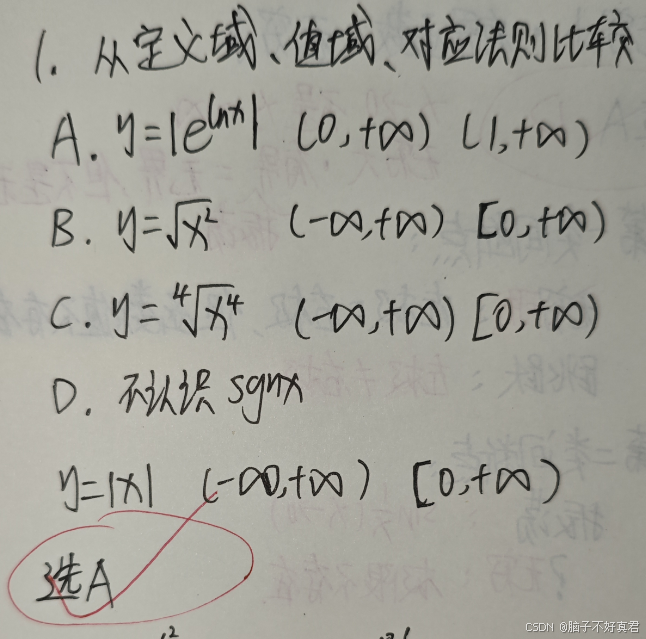 1. 从定义域、值域、对应法则比较
A. y=|e^{lnx}| (0,+∞) (1,+∞)
B. y=√x² (-∞,+∞) [0,+∞)
C. y=⁴√x⁴ (-∞,+∞) [0,+∞)
D. 不认识 sgnx
y=|x| (-∞,+∞) [0,+∞)
选A
CSDN @脑子不好真君